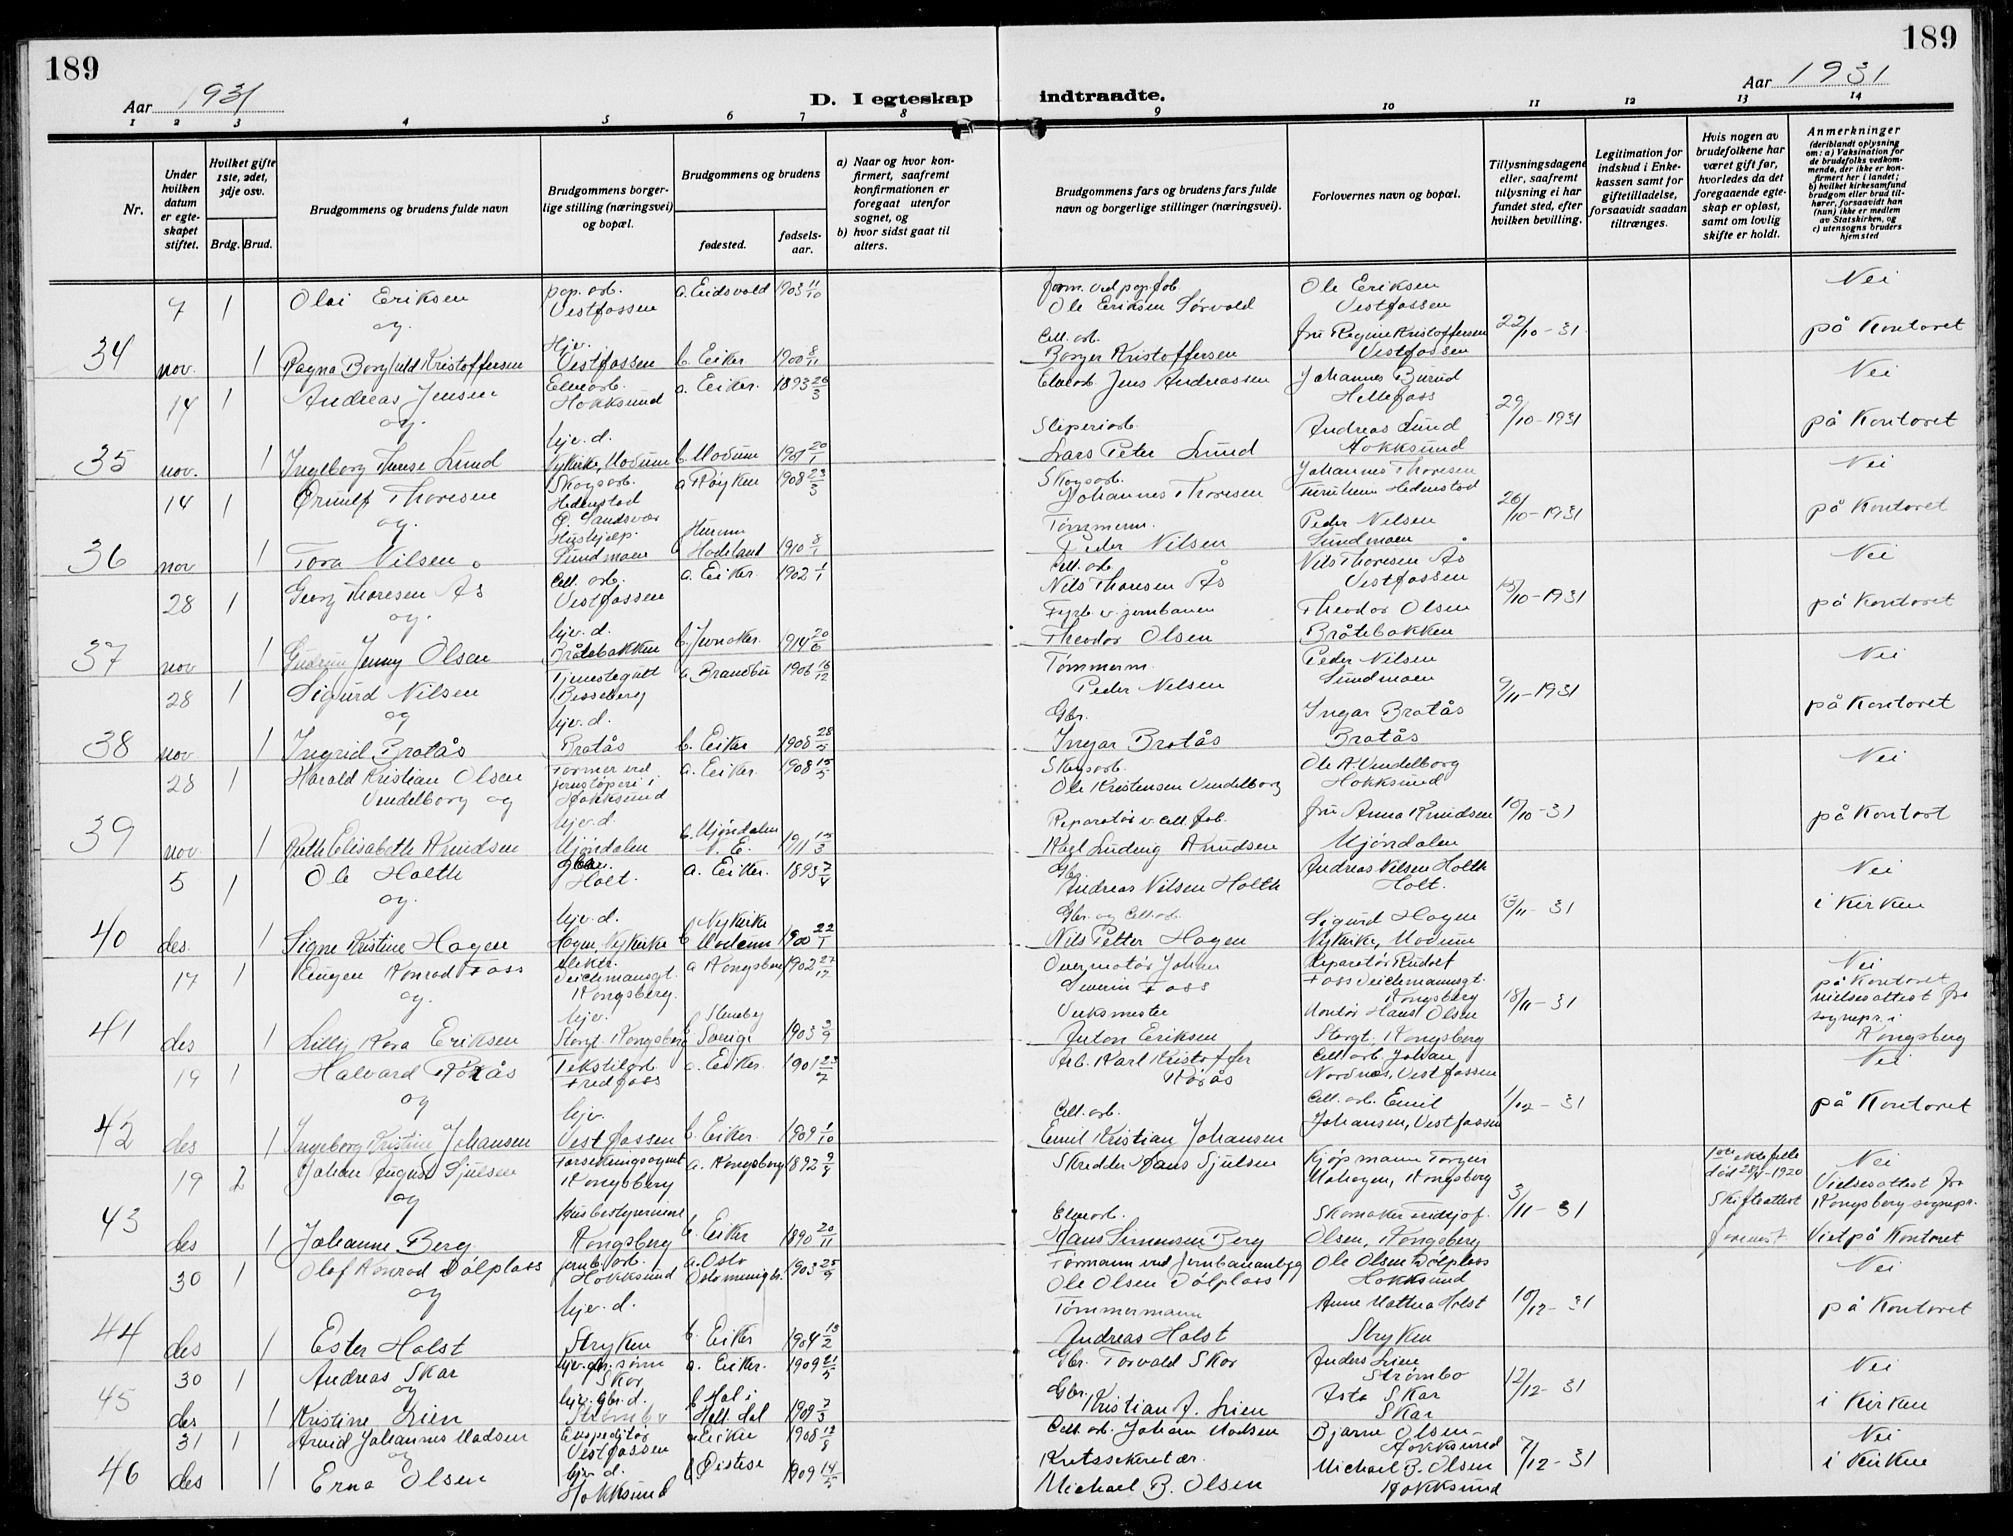 189
189
Aar 1931
D. I egteskap
indtraadte.
Aar 1931
1 2 3 4 5 6 7 8 9 10 11 12 13 14
Nr.
Under hvilken datum er egteskapet stiftet.
Hvilket gifte 1ste, 2det, 3dje osv.
Brdg. Brud.
Brudgommens og brudens fulde navn
Brudgommens borgerlige stilling (næringsvei) og bopæl.
Brudgommens og brudens
fødested.
fødselsaar.
a) Naar og hvor konfirmert, saafremt konfirmationen er foregaat utenfor sognet, og
b) hvor sidst gaat til alters.
Brudgommens fars og brudens fars fulde navn og borgerlige stillinger (næringsvei).
Forlovernes navn og bopæl.
Tillysningsdagene eller, saafremt tillysning ei har fundet sted, efter hvilken bevilling.
Legitimation for indskud i Enkekassen samt for giftetilladelse, forsaavidt saadan tiltrænges.
Hvis nogen av brudefolkene har været gift før, hvorledes da det foregaaende egteskap er opløst, samt om lovlig skifte er holdt.
Anmerkninger (deriblandt oplysning om: a) Vaksination for de brudefolks vedkommende, der ikke er konfirmert her i landet; b) hvilket kirkesamfund brudgom eller brud tilhører, forsaavidt han (hun) ikke er medlem av Statskirken, og c) utensogns bruders hjemsted
34
7 1 Olai Eriksen pap. arb. Vestfossen a. Eidsvold 1903 11/10 form. ved pap.fab. Ole Eriksen Sørvald Ole Eriksen Vestfossen Nei
og
nov. 1 Ragna Borghild Kristoffersen Hjv. Vestfossen b. Eiker 1900 8/11 Cell. arb. Borger Kristoffersen fru Regine Kristoffersen Vestfossen 22/10-31 på Kontoret
35
14 1 Andreas Jensen Elvearb. Hokksund a. Eiker. 1893 26/3 Elvearb. Jens Andreassen Johannes Burud Hellefoss Nei
og.
nov. 1 Ingeborg Therese Lund hjv. d. Nykirke, Modum b. Modum 1901 20/1 Sliperiarb. Lars Peter Lund Andreas Lund Hokksund 29/10-1931 på Kontoret
36
14 1 Ørnulf Thoresen Skogsarb. Hedenstad Ø. Sandsvær a Røyken 1908 23/3 Skogsarb. Johannes Thoresen Johannes Thoresen Furuheim Hedenstad Nei
og.
nov 1 Tora Nilsen Hushjelp. Sundmoen Hurum Hodeland 1910 8/1 Tømmerm. Peder Nilsen Peder Nilsen Sundmoen 26/10-1931 på Kontoret
37
28 1 Georg Thoresen Ås Cell. arb. Vestfossen a. Eiker 1902 1/1 Cell. arb. Nils Thoresen Ås Nils Thoresen Ås Vestfossen Nei
og.
nov 1 Gudrun Jenny Olsen hjv. d. Bråtebakken b. Jevnaker. 1914 20/6 Fyrb. v. jernbanen Theodor Olsen Theodor Olsen Bråtebakken 15/10-1931 på Kontoret
38
28 1 Sigurd Nilsen Tjenestegutt Besseberg a. Brandbu 1906 16/12 Tømmerm. Peder Nilsen Peder Nilsen Sundmoen Nei
og
nov 1 Ingrid Bratås hjv. d. Bratås b. Eiker 1908 28/5 Gbr. Ingar Bratås Ingar Bratås Bratås 9/11-1931 på Kontoret
39
28 1 Harald Kristian Olsen Vendelborg og Former ved jernstøperi i Hokksund a. Eiker. 1908 15/5 Skogsarb. Ole Kristensen Vendelborg Ole A. Vendelborg Hokksund Nei
nov. 1 Ruth Elisabeth Knudsen hjv. d. Mjøndalen b. Mjøndalen N. E. 1911 15/3 Reparatør v. cell. fab. Karl Ludvig Knudsen fru Anna Knudsen Mjøndalen 19/10-31 på Kontort
40
5 1 Ole Holth Gbr. Holt. a. Eiker. 1893 7/4 Gbr. Andreas Nilsen Holth Andreas Nilsen Holth Holt. Nei
og.
des. 1 Signe Kristine Hagen hjv. d. Hagen, Nykirke b Nykirke Modum 1900 22/1 Gbr. og Cell.arb. Nils Petter Hagen Sigurd Hagen Nykirke, Modum 13/11-31 i Kirken
41
17 1 Eugen Konrad Foss elektr. Teichmansgt. Kongsberg. a Kongsberg 1902 27/12 Severin Foss Reparatør Rudolf Foss Teichmannsgt. Kongsberg Nei på Kontoret
og.
des 1 Lilly Kora Eriksen hjv. Storgt. Kongsberg Sverige 1903 2/9 Verksmester Anton Eriksen Kontor Hans Olsen Storgt. Kongsberg 18/11-31 Vielsesattest fra sognepr. i Kongsberg
42
19 1 Halvard Røkås Tekstilarb. Fredfoss a. Eiker. 1901 23/7 Arb. Karl Kristoffer Røkås Cell. arb. Johan Nordnes, Vestfossen Nei
og
des 1 Ingeborg Kristine Johansen hjv. Vestfossen b. Eiker. 1909 1/10 Cell. arb. Emil Kristian Johansen Cell. arb. Emil Johansen, Vestfossen 1/12-31 på Kontoret
43
19 2 Johan August Sjulsen Forsikringsagent Kongsberg a. Kongsberg 1892 9/9 Skredder Hans Sjulsen Kjøpmann Torger Mohagen, Kongsberg ektefelle død 28/4-1920 Nei
og
des 1 Johanne Berg Husbestyrerinne Kongsberg b. Eiker 1890 20/11 Elvearb. Hans Simensen Berg Skomaker Olsen, Kongsberg 3/11-31 Skifteattest forevist Vielsesattest fra Kongsberg sognepr. Viet på Kontoret
44
30 1 Olaf Konrad Dølplass jernb. arb. Hokksund a. Oslo Oslo menigh. 1903 25/9 Formann ved Jernbaneanlegg Ole Olsen Dølplass Ole Olsen Dølplass Hokksund Nei
og
des 1 Ester Holst hjv. d. Stryken b. Eiker 1904 13/2 Tømmermann Andreas Holst Anne Mathea Holst Stryken 10/12-31 på Kontoret
45
30 1 Andreas Skar hjv. gbr. sønn Skar a. Eiker. 1909 21/5 Gbr. Torvald Skar Anders Lien Strømbo Nei
og
des 1 Kristine Lien hjv. Gbr. d. b. Hol i Hall.dal 1909 7/3 Gbr. Kristian A. Lien Asta Skar Skar 12/12-31 i Kirken
46
31 1 Arvid Johannes Madsen Ekspeditør Vestfossen a Eiker 1908 12/9 Cell. arb. Johan Madsen Bjarne Olsen Hokksund Nei
og
des 1 Erna Olsen hjv. d. Hokksund b Øistese 1909 14/5 Kretssekretær. Michael B. Olsen Michael B. Olsen Hokksund 7/12-31 i Kirken